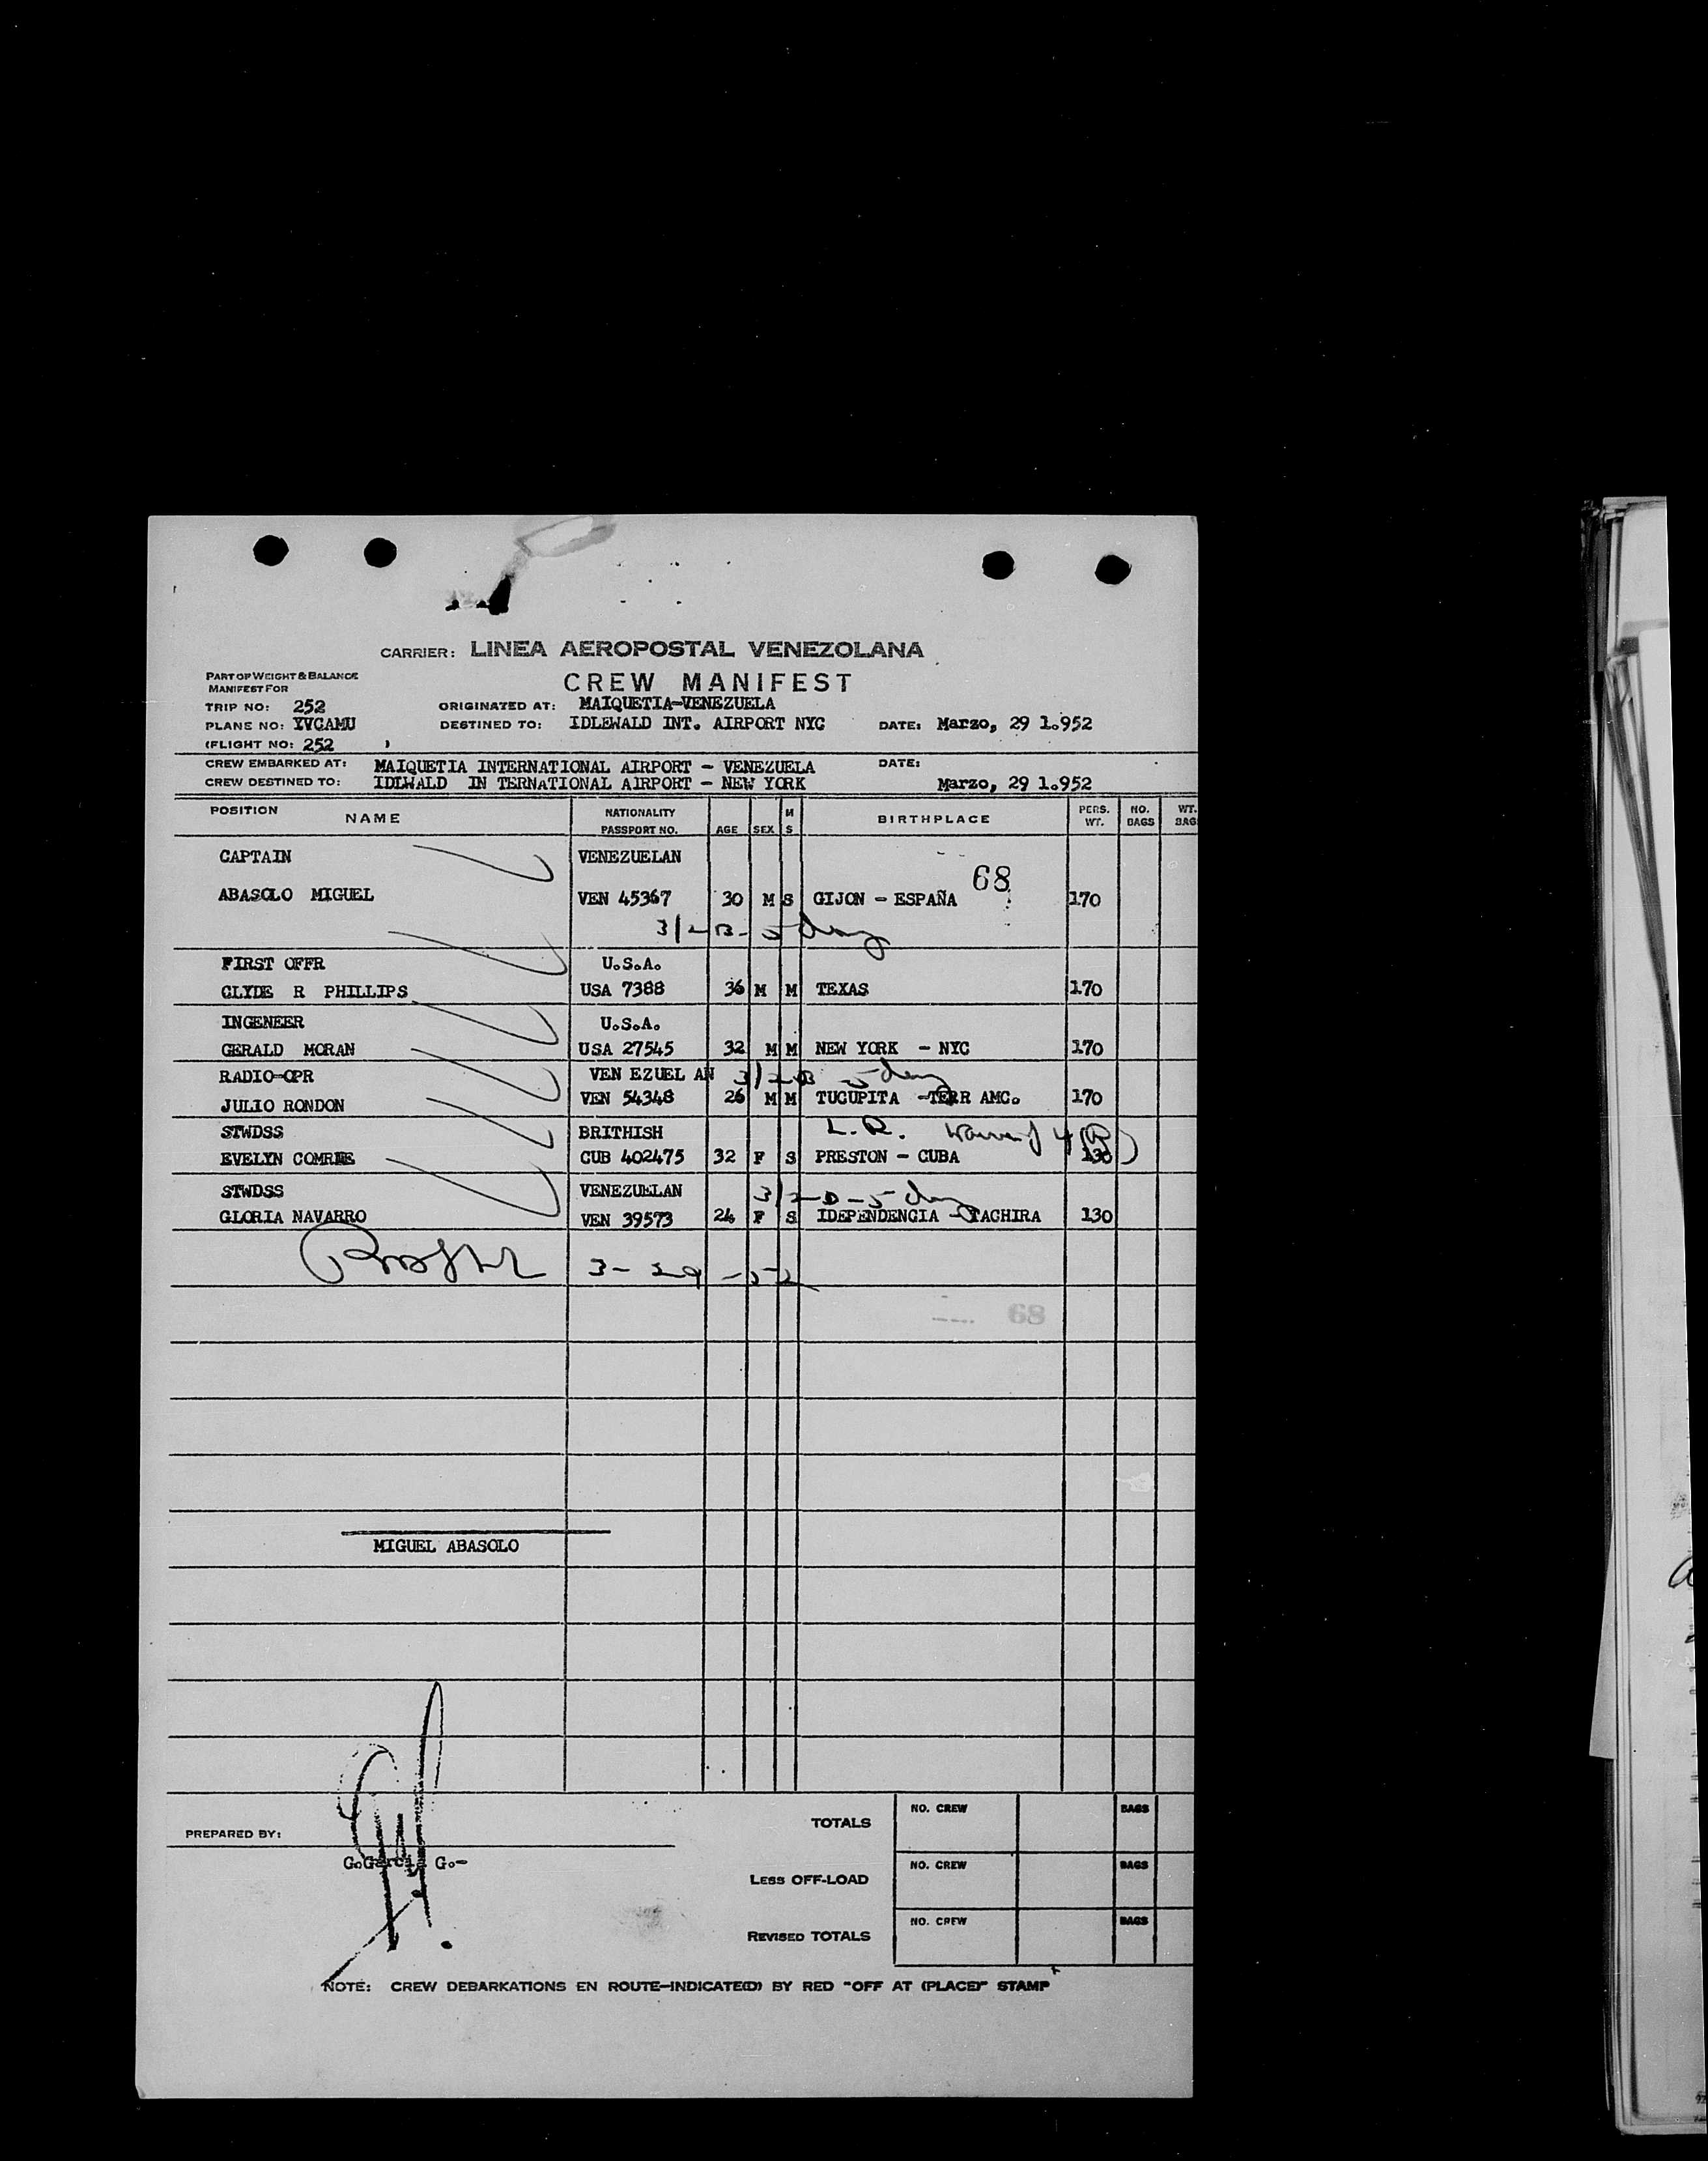 CARRIER: LINEA AEROPOSTAL VENEZOLANA
PART OF WEIGHT & BALANCE
MANIFEST FOR
CREW MANIFEST
TRIP NO: 252 ORIGINATED AT: MAIQUETIA-VENEZUELA
PLANE NO: YVCAMU DESTINED TO: IDLEWALD INT. AIRPORT NYC DATE: Marzo, 29 1.952
(FLIGHT NO: 252 )
CREW EMBARKED AT: MAIQUETIA INTERNATIONAL AIRPORT - VENEZUELA DATE:
CREW DESTINED TO: IDLWALD IN TERNATIONAL AIRPORT - NEW YORK Marzo, 29 1.952
POSITION NAME NATIONALITY PASSPORT NO. AGE SEX M S BIRTHPLACE PERS. WT. NO. BAGS WT. BAG
CAPTAIN VENEZUELAN
68
ABASOLO MIGUEL VEN 45367 30 M S GIJON - ESPAÑA 170
FIRST OFFR U.S.A.
CLYDE R PHILLIPS USA 7388 36 M M TEXAS 170
INGENEER U.S.A.
GERALD MORAN USA 27545 32 M M NEW YORK - NYC 170
RADIO-OPR VEN EZUEL AN
JULIO RONDON VEN 54348 26 M M TUCUPITA -TERR AMC. 170
STWDSS BRITHISH L.R.
EVELYN CUB 402475 32 F S PRESTON - CUBA 130
STWDSS VENEZUELAN
GLORIA NAVARRO VEN 39573 24 F S IDEPENDENCIA - TACHIRA 130
3-29-52
68
MIGUEL ABASOLO
TOTALS NO. CREW BAGS
PREPARED BY:
G.Garcia G.-
LESS OFF-LOAD NO. CREW BAGS
REVISED TOTALS NO. CREW BAGS
NOTE: CREW DEBARKATIONS EN ROUTE-INDICATE(D) BY RED "OFF AT (PLACE)" STAMP